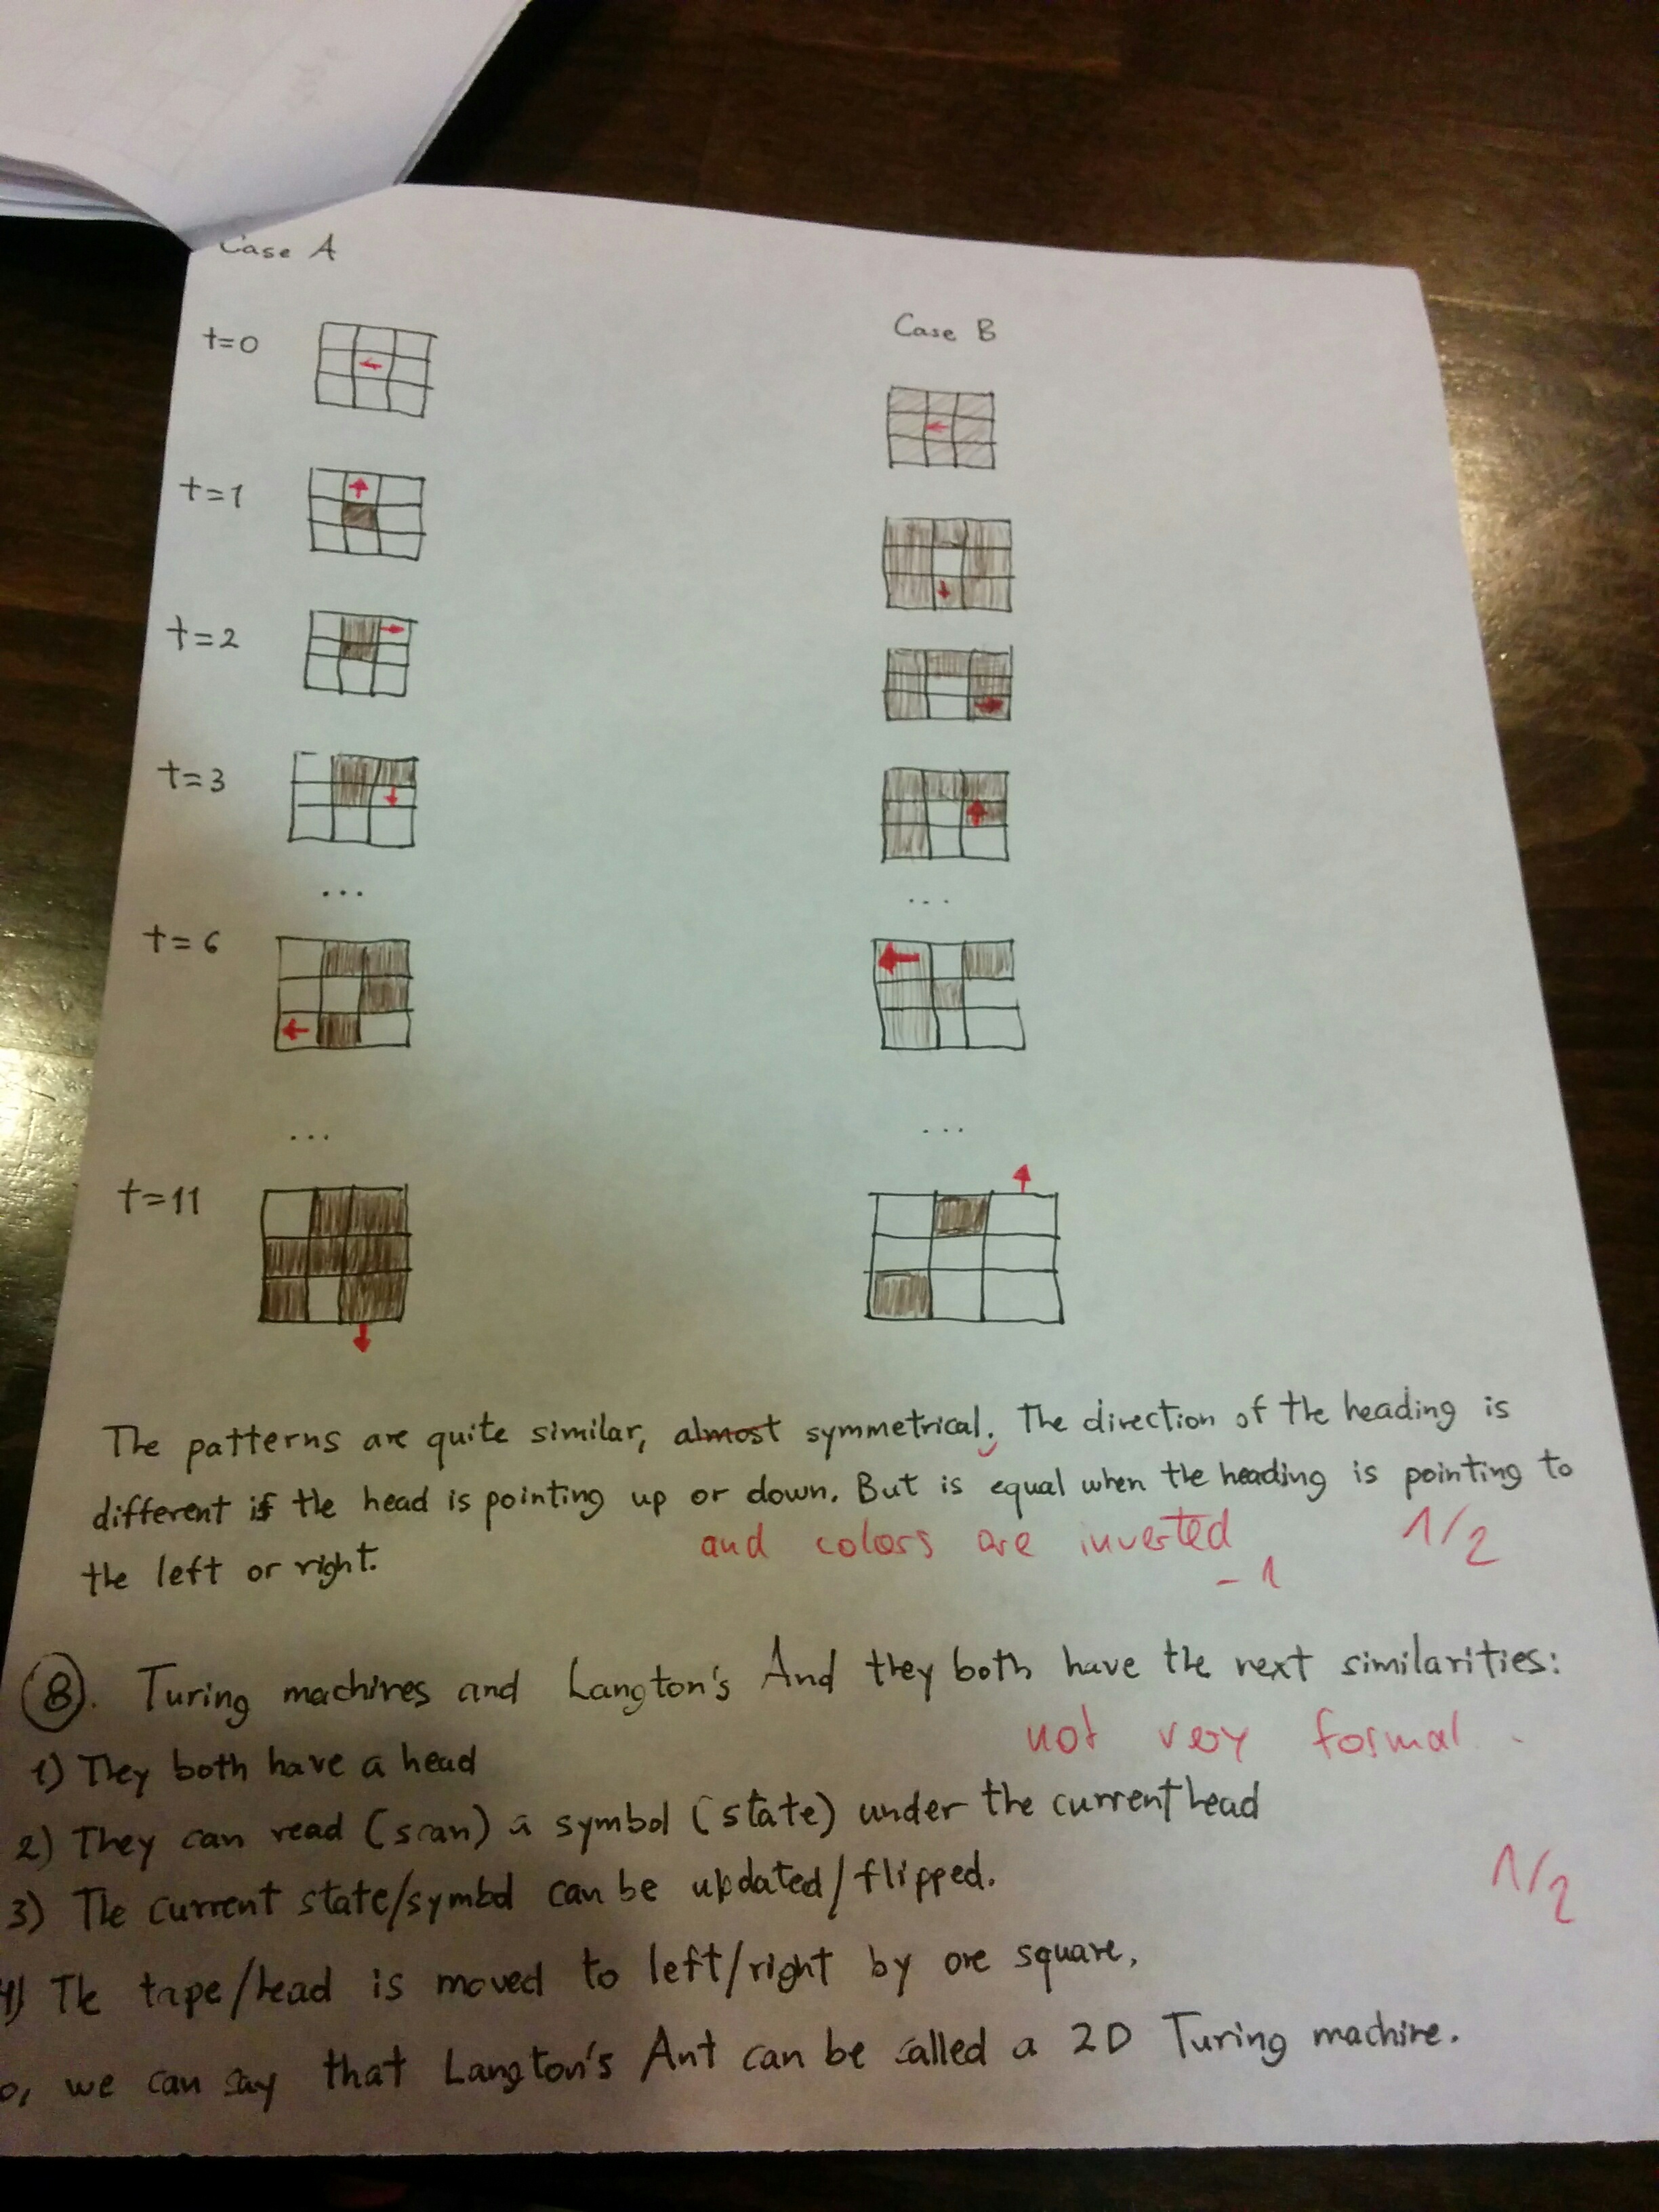 Case A
t=0
Case B
t=1
t=2
t=3
...
...
t=6
...
...
t=11
The patterns are quite similar, almost symmetrical. The direction of the heading is
different if the head is pointing up or down. But is equal when the heading is pointing to
the left or right.
and colors are inverted
1/2
-1
B. Turing machines and Langton's And they both have the next similarities:
not very formal.
1) They both have a head
2) They can read (scan) a symbol (state) under the current head
3) The current state/symbol can be updated/flipped.
1/2
4) The tape/head is moved to left/right by one square.
o, we can say that Langton's Ant can be called a 2D Turing machine.